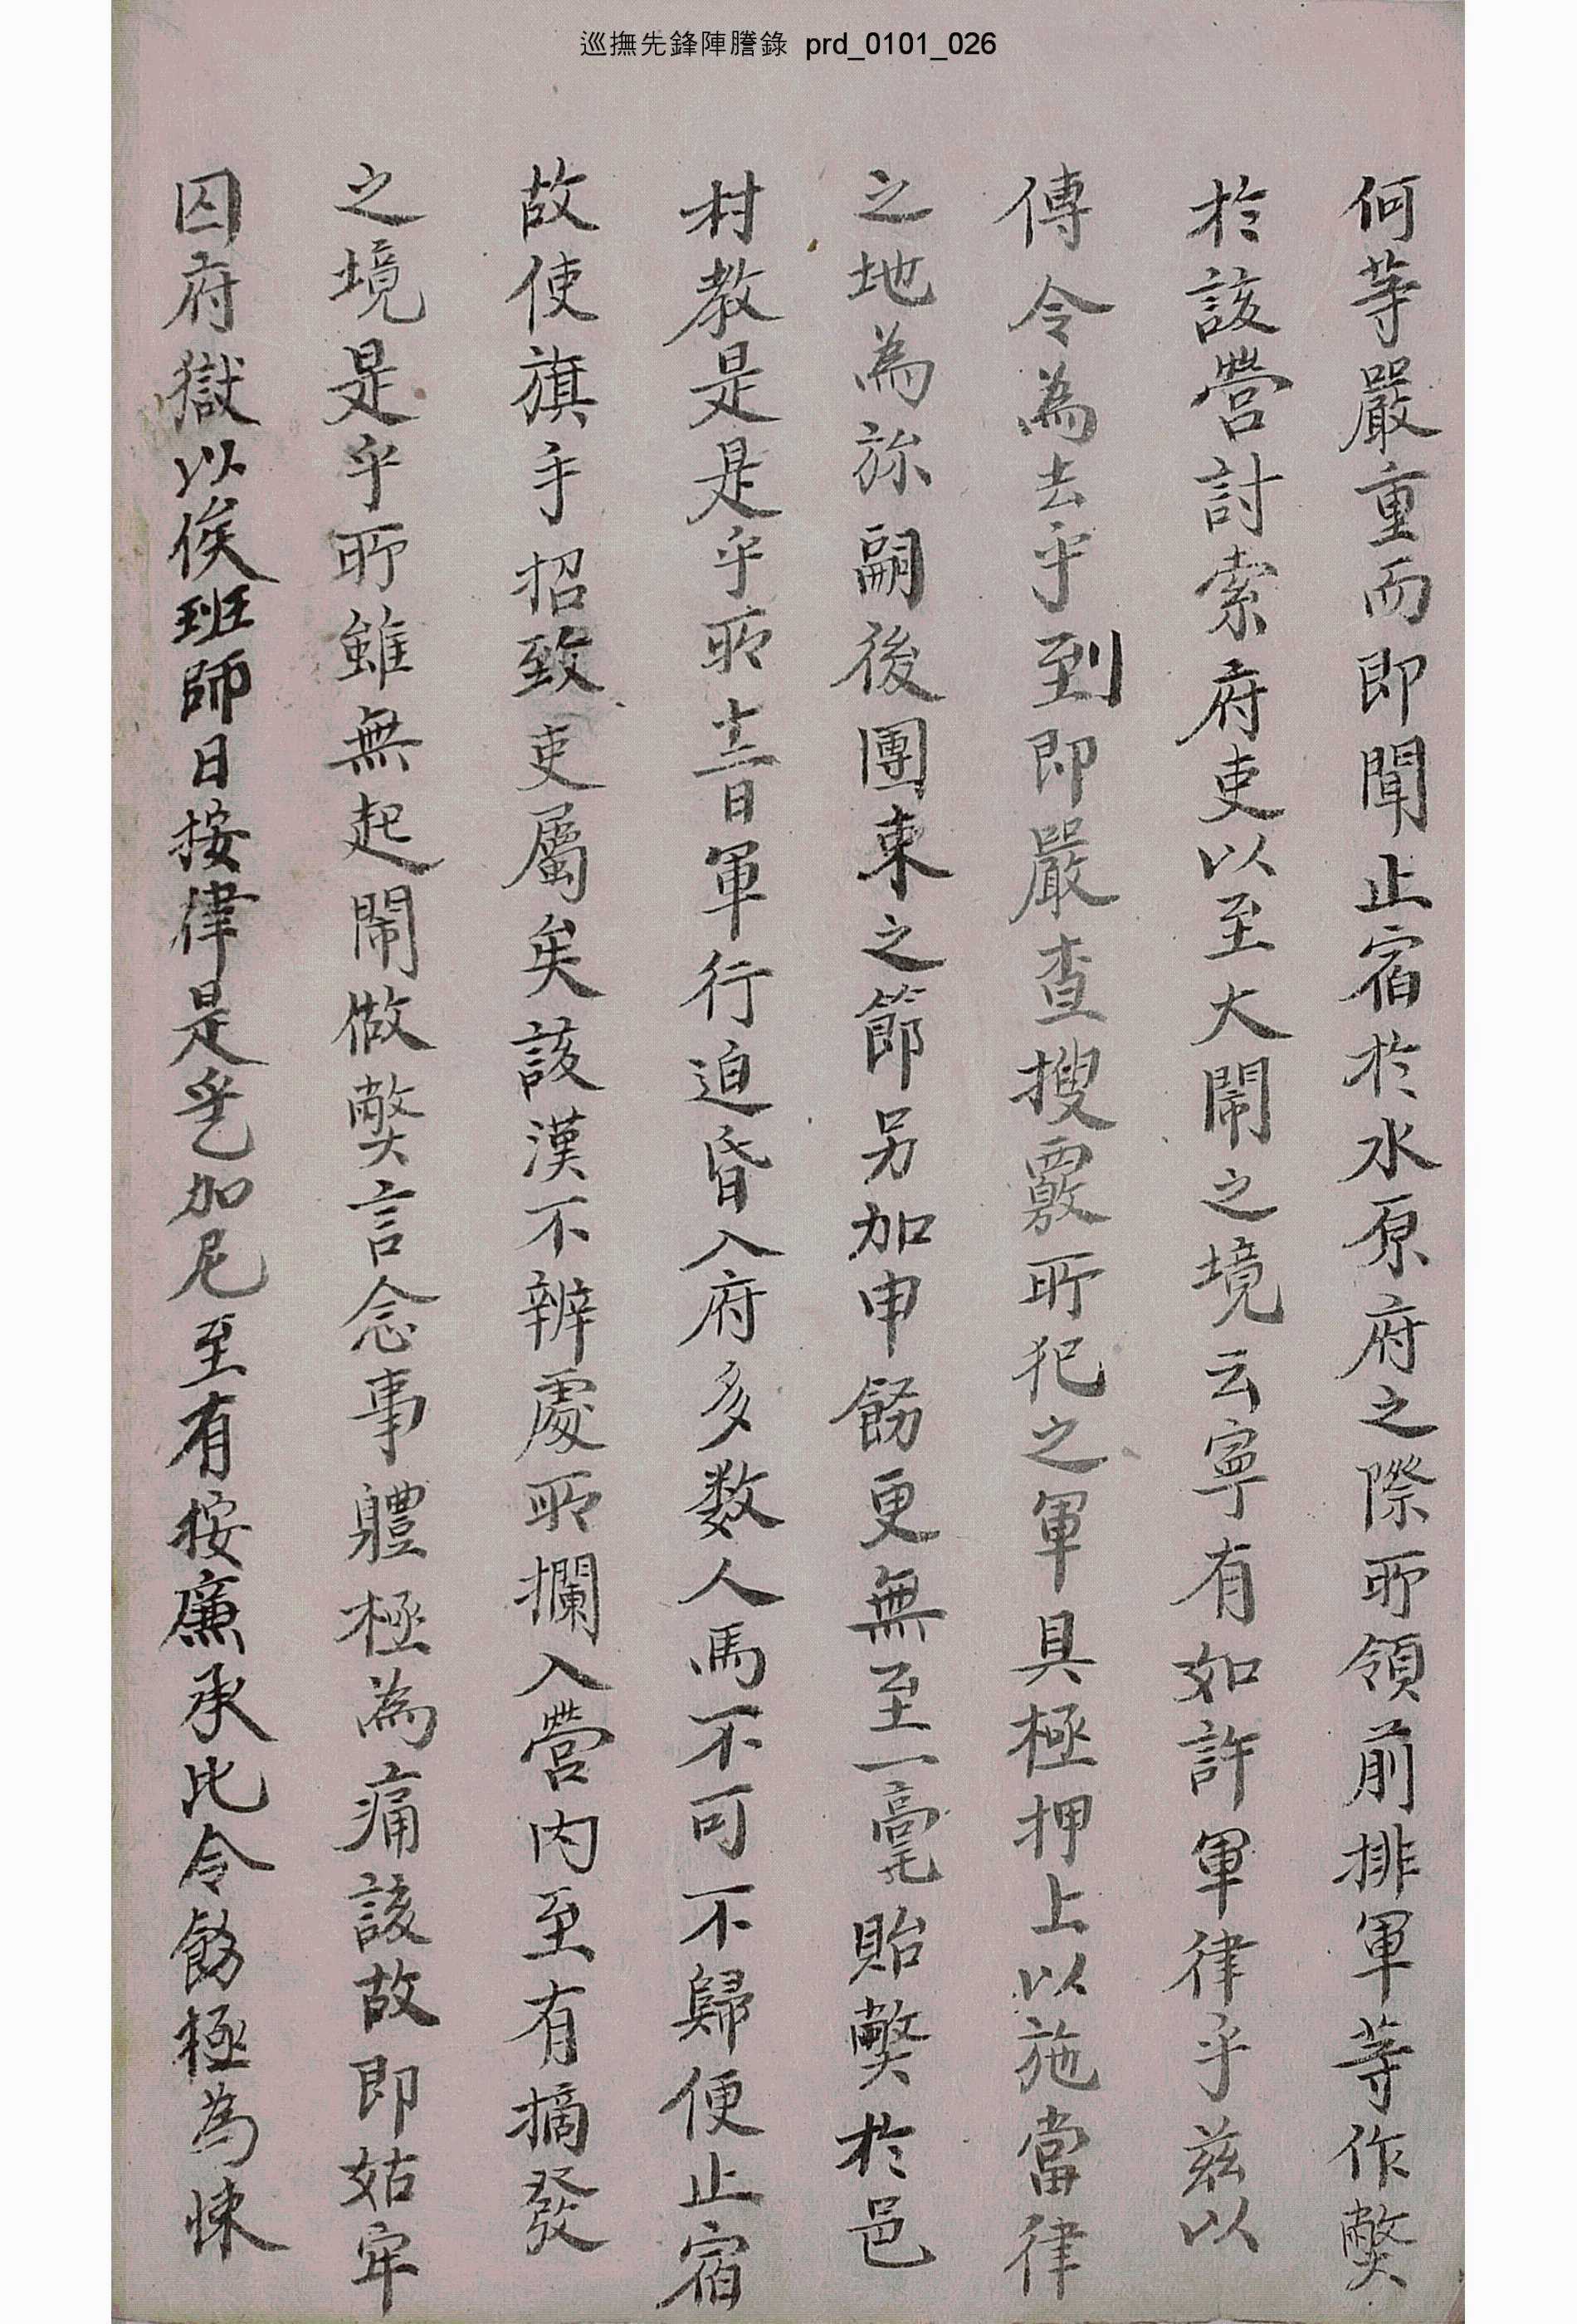 巡撫先鋒陣謄錄 prd_0101_026
何等嚴重而即聞止宿於水原府之際所領前排軍等作獘
於該營討索府吏以至大鬧之境云寧有如許軍律乎玆以
傳令爲去乎到即嚴查搜覈所犯之軍具極押上以施當律
之地爲旀嗣後團束之節另加申飭更無至一毫貽獘於邑
村教是是乎所十二日軍行迫昏入府多数人馬不可不歸便止宿
故使旗手招致吏屬矣該漢不辨處所攔入營內至有摘發
之境是乎所雖無起鬧做獘言念事軆極爲痛該故即姑牢
囚府獄以俟班師日按律是乎乙加尼至有按廉承比令飭極爲悚